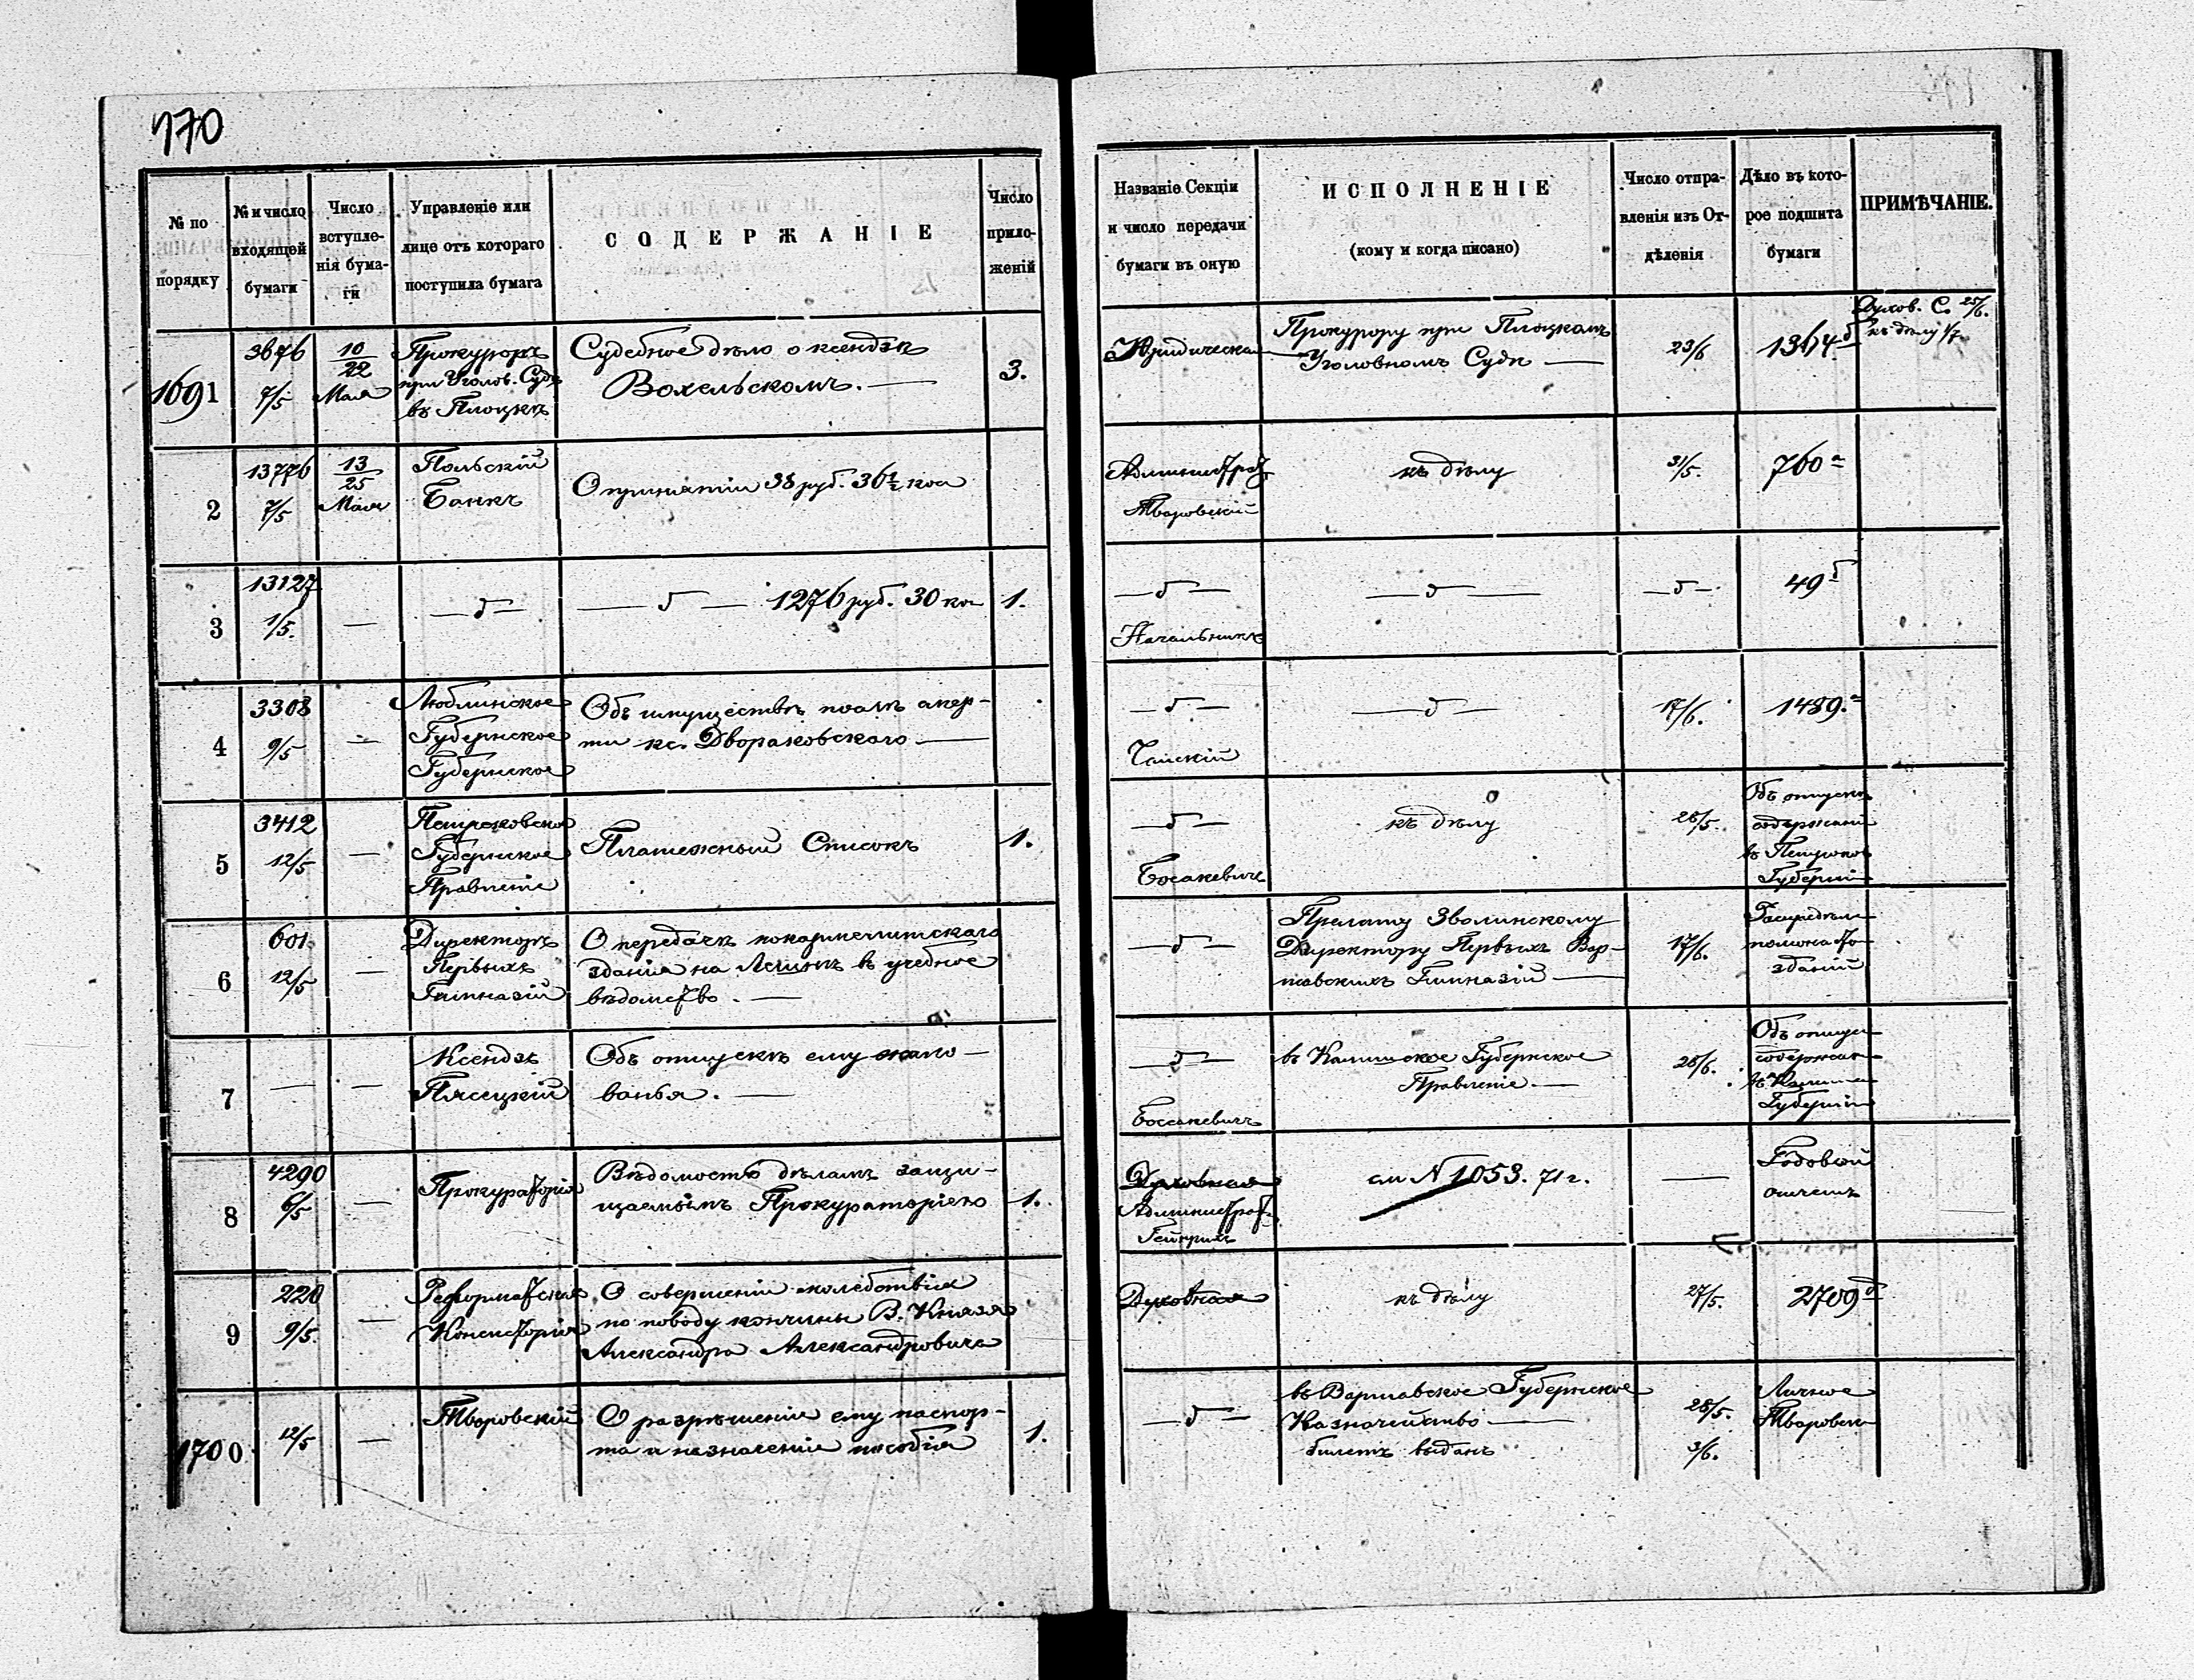 170
№ по порядку
№ и число входящей бумаги
Число вступленія бумаги
Управленіе или лице отъ котораго поступила бумага
СОДЕРЖАНІЕ
Число приложеній
Названіе Секціи и число передачи бумаги въ оную
ИСПОЛНЕНІЕ
(кому и когда писано)
Число отправленія изъ Отдѣленія
Дѣло въ которое подшита бумаги
ПРИМѢЧАНІЕ.
1691
3676
7/5
10/22
Мая
Прокуроръ
при Уголов. Судѣ
въ Плоцкѣ
Судебное дѣло о ксендзѣ
Вохельскомъ. —
3.
Юридическая
Прокурору при Плоцкомъ
Уголовномъ Судѣ —
23/6
1364 б
Духов. С. 25/6.
къ дѣлу 1/7
2
13776
7/5
13/25
Мая
Польскій
Банкъ
О принятіи 38 руб. 36½ коп
Администрат
Тваровскій
къ дѣлу
31/5.
760 а
3
13127
1/5.
—
— д —
— д — 1276 руб. 30 коп
1.
— д —
Начальникъ
— д —
— д —
49 б
4
3308
9/5
—
Люблинское
Губернское
Губернское
Объ имуществѣ послѣ смер-
ти кс. Двораковскаго —
— д —
— д —
17/6.
1489. а
5
3412
12/5
—
Петроковское
Губернское
Правленіе
Платежный Списокъ
1.
— д —
Босакевичъ
къ дѣлу
26/5.
Объ отпускѣ
содержанія
въ Петроков
Губерніи
6
601
12/5
—
Директоръ
Первыхъ
Гимназій
О передачѣ покармелитскаго
зданія на Лешнѣ въ учебное
вѣдомство. —
— д —
Прелату Зволинскому
Директору Первыхъ Вар-
шавскихъ Гимназій —
17/6.
зданій
7
—
—
Ксендзъ
Плясецкій
Объ отпускѣ ему жало-
ванья. —
— д —
Босакевичъ
въ Калишское Губернское
Правленіе. —
26/6.
Объ отпуск
содержан
въ Калиш
Губерніи
8
4290
6/5
—
Прокураторія
Вѣдомость дѣламъ защи-
щаемымъ Прокураторіею
1.
Духовная
Администрат.
см N 1053. 71 г.
—
Годовой
отчетъ
9
220
9/5.
—
Реформатская
Консисторія
О совершеніи молебствія
по поводу кончины В. Князя
Александра Александровича
Духовная
къ дѣлу
27/5.
2709 д
1700
12/5
—
Тваровскій
О разрѣшеніи ему паспор-
та и назначеніи пособія
1.
— д —
въ Варшавское Губернское
Казначейство —
билетъ выданъ
28/5.
3/6.
Личное
Тваровск